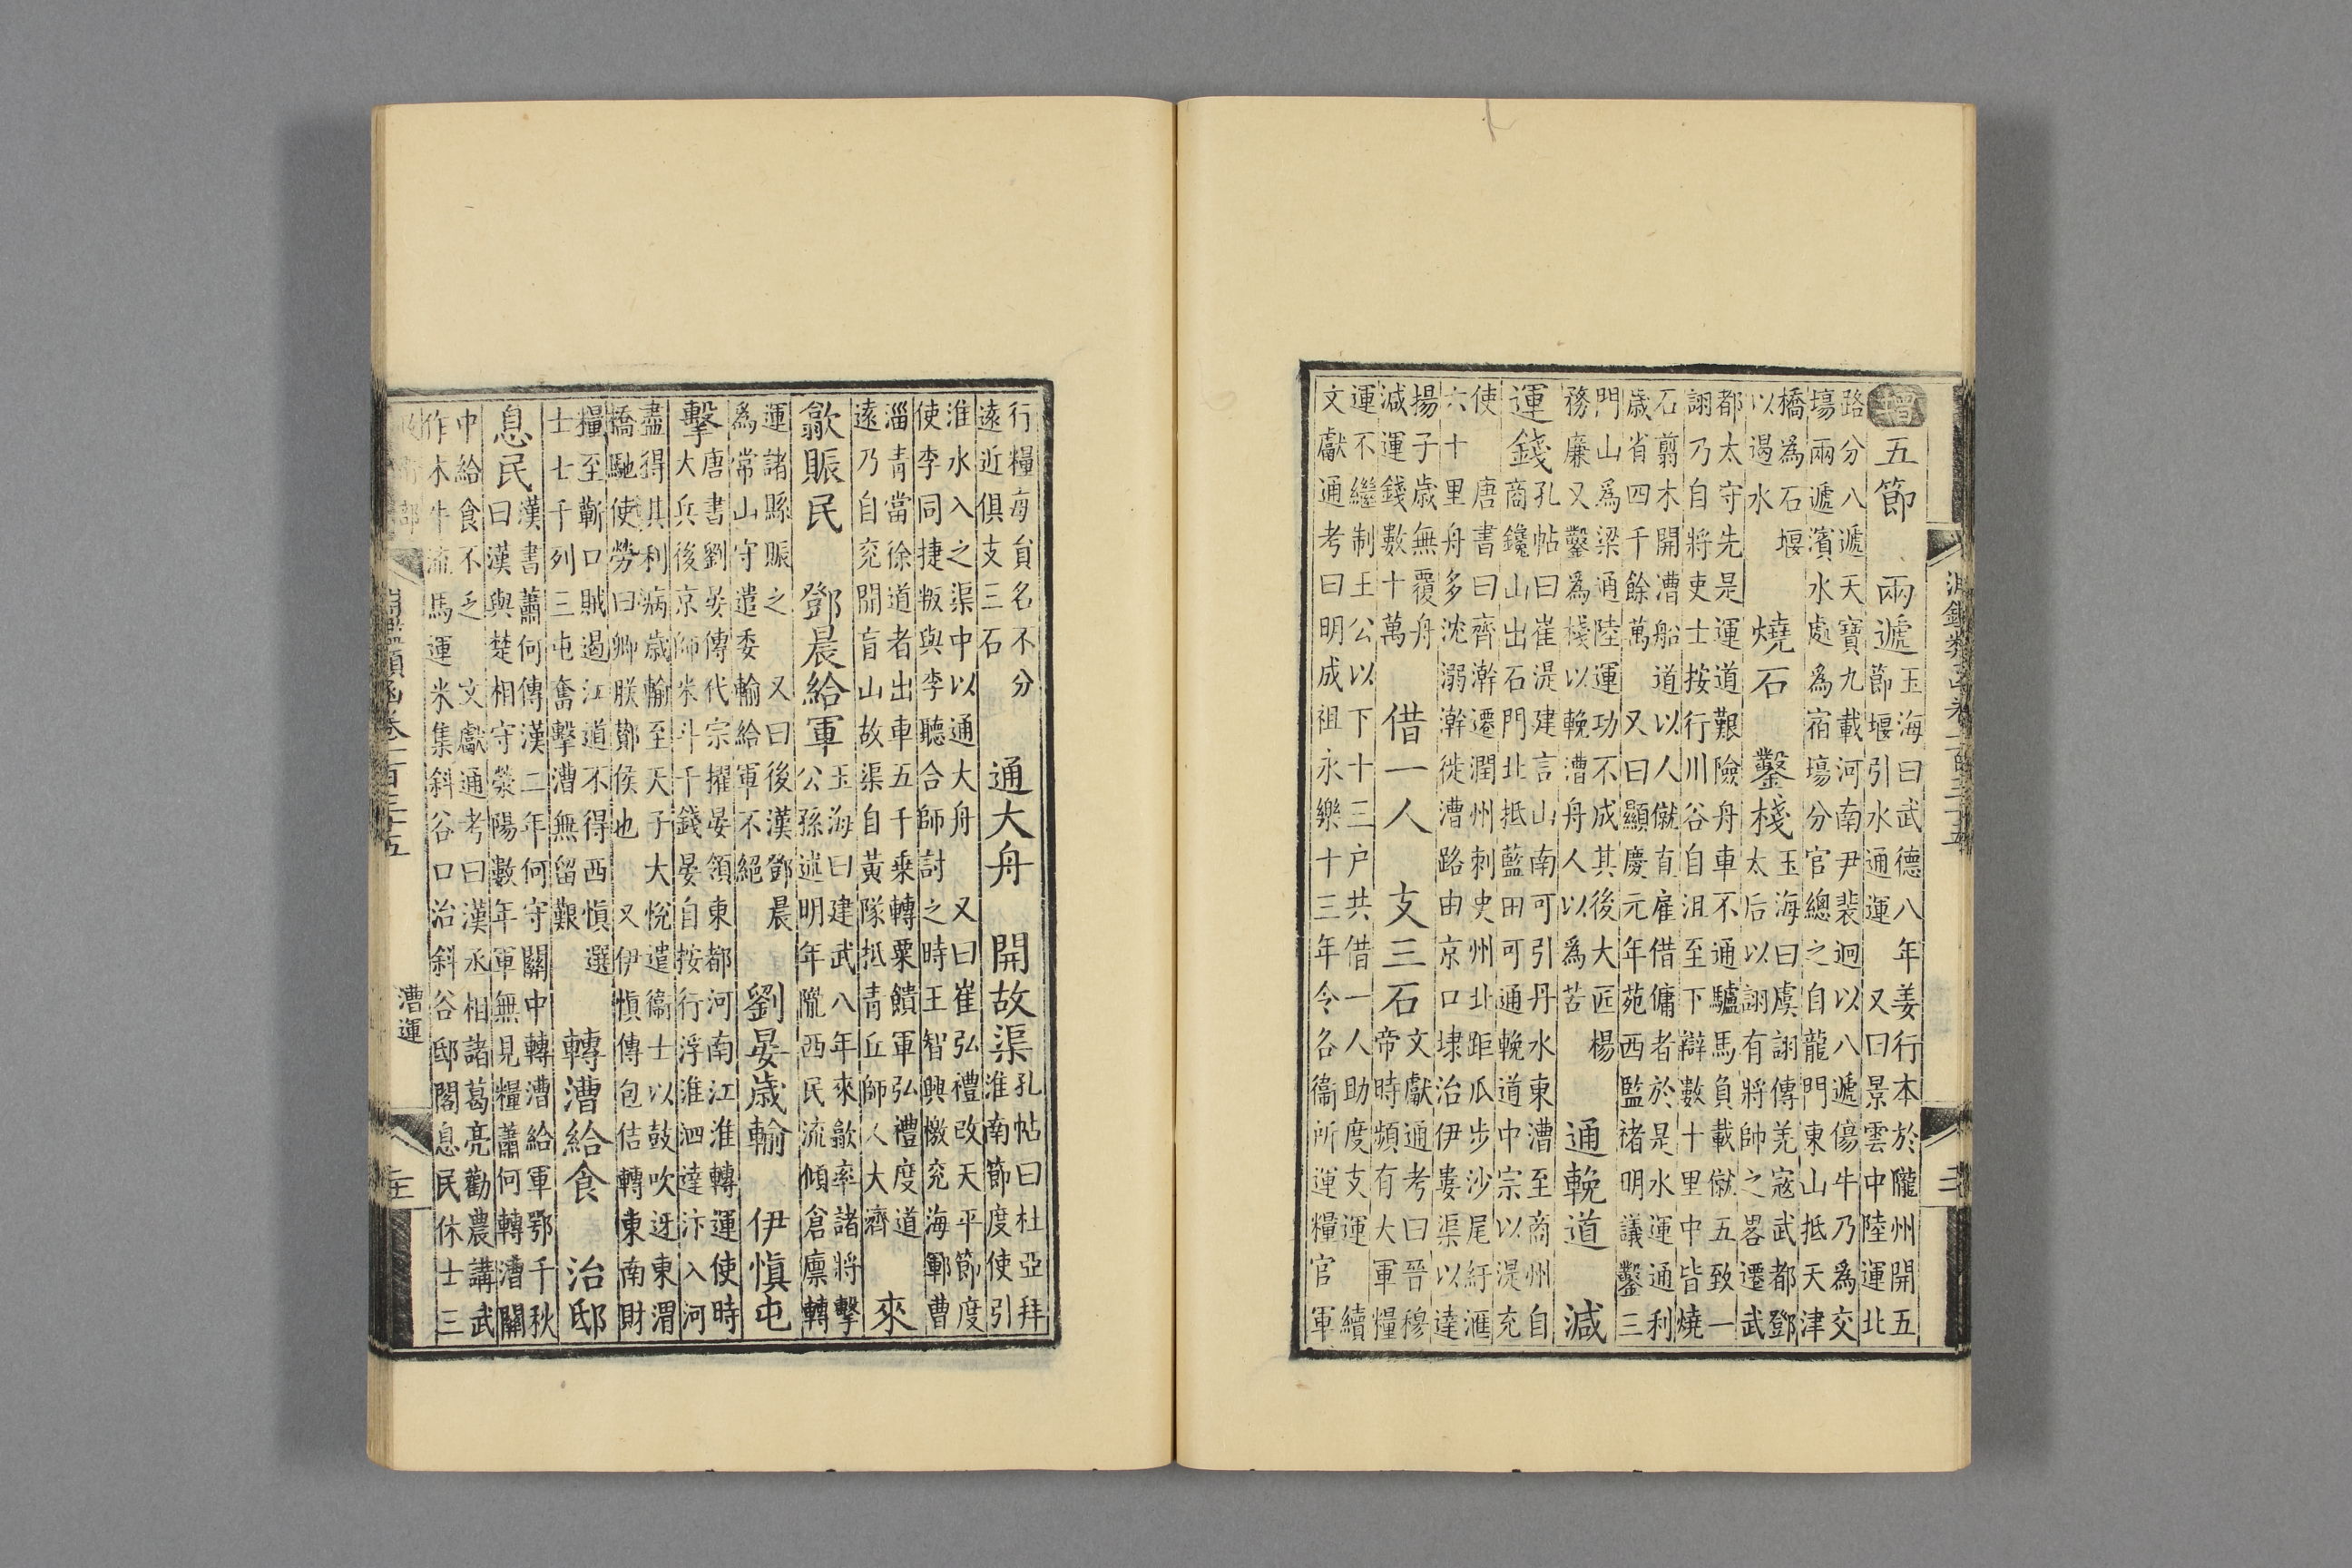 淵鑑類函卷一百三十五
三
增五節 兩遞
玉海曰武德八年姜行本於隴州開五
節堰引水通運 又曰景雲中陸運北
路分八遞天寶九載河南尹裴迥以八遞傷牛乃為交
塲兩遞濱水處為宿塲分官總之自龍門東山抵天津
橋為石堰
以遏水
燒石 鑿棧
玉海曰虞詡傳羌寇武都鄧
太后以詡有將帥之畧遷武
都太守先是運道艱險舟車不通驢馬負載僦五致一
詡乃自將吏士按行川谷自沮至下辯數十里中皆燒
石翦木開漕船道以人僦直雇借傭者於是水運通利
歳省四千餘萬 又曰顯慶元年苑西監禇明議鑿三
門山為梁通陸運功不成其後大匠楊
務廉又鑿為棧以輓漕舟人以為苦
通輓道 減
運錢
孔帖曰崔湜建言山南可引丹水東漕至商州自
商鑱山出石門北抵藍田可通輓道中宗以湜充
使 唐書曰齊澣遷潤州刺史州北距瓜步沙尾紆滙
六十里舟多沈溺澣徙漕路由京口埭治伊婁渠以達
揚子歳無覆舟
減運錢數十萬
借一人 支三石
文獻通考曰晉穆
帝時頻有大軍糧
運不繼制王公以下十三户共借一人助度支運 續
文獻通考曰明成祖永樂十三年令各衛所運糧官軍
行糧每貟名不分
逺近俱支三石
通大舟 開故渠
孔帖曰杜亞拜
淮南節度使引
淮水入之渠中以通大舟 又曰崔弘禮改天平節度
使李同捷叛與李聽合師討之時王智興檄兖海鄆曹
淄青當徐道者出車五千乗轉粟饋軍弘禮度道
逺乃自兖開盲山故渠自黄隊抵青丘師人大濟
來
歙賑民 鄧晨給軍
玉海曰建武八年來歙率諸將擊
公孫述明年隴西民流傾倉廪轉
運諸縣賑之 又曰後漢鄧晨
為常山守遣委輸給軍不絕
劉晏歳輸 伊慎屯
擊
唐書劉晏傳代宗擢晏領東都河南江淮轉運使時
大兵後京師米斗千錢晏自按行浮淮泗達汴入河
盡得其利病歳輸至天子大悅遣衛士以鼓吹迓東渭
橋馳使勞曰卿朕酇侯也 又伊慎傳包佶轉東南財
糧至蘄口賊遏江道不得西慎選
士七千列三屯奮擊漕無留艱
轉漕給食 治邸
息民
漢書蕭何傳漢二年何守關中轉漕給軍鄂千秋
曰漢與楚相守滎陽數年軍無見糧蕭何轉漕關
中給食不乏 文獻通考曰漢丞相諸葛亮勸農講武
作木牛流馬運米集斜谷口治斜谷邸閣息民休士三
淵鑑類函卷一百三十五
漕運